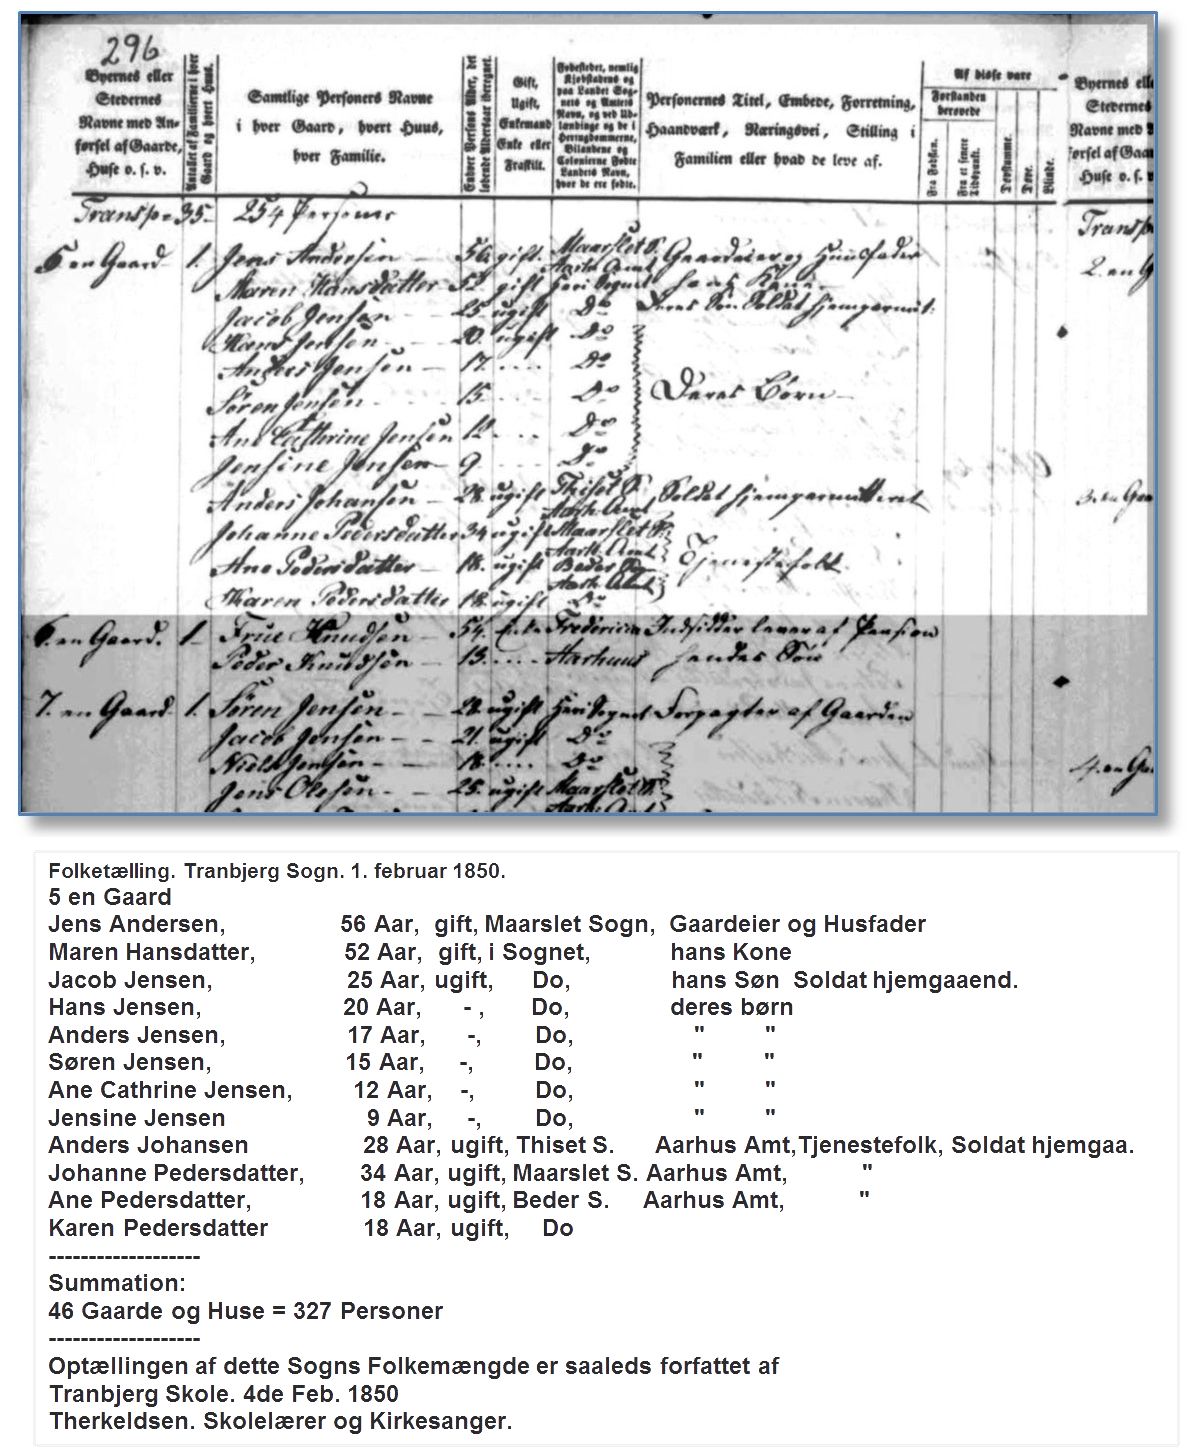 296
Byernes eller
Stedernes
Navne med An-
førsel af Gaarde,
Huse o. s. v.
Antallet af Familierne i hver
Gaard og hvert Huus.
Samtlige Personers Navne
i hver Gaard, hvert Huus,
hver Familie.
Enhver Persons Alder, det
løbende Aldersaar iberegnet.
Gift,
Ugift,
Enkemand
Enke eller
Fraskilt.
Fødestedet, nemlig
Kjøbstadens og
paa Landet Sog-
nets og Amtets
Navn, og ved Ud-
lændinge og de i
Hertugdømmerne,
Bilandene og
Colonierne Fødte
Landets Navn,
hvor de ere fødte.
Personernes Titel, Embede, Forretning,
Haandværk, Næringsvei, Stilling i
Familien eller hvad de leve af.
Af disse vare
Forstanden
berovede
Fra Fødsen.
Fra et senere
Tidspunkt.
Døvstumme.
Døve.
Blinde.
Byernes elle
Stedernes
Navne med
førsel af Gaa
Huse o. s. v
Transp. 35. 254 Personer
Transp
5 en Gaard 1. Jens Andersen 56 gift. Maarslet S. Aarh. Amt Gaardeier og Huusfader
2. en G
Maren Hansdatter 52. gift heri Sognet hans Kone.
Jacob Jensen 25 ugift Do Deres Søn Soldat hjempermit.
Hans Jensen 20. ugift Do
Anders Jensen 17. Do
Søren Jensen 15. Do Deres Børn
Ane Cathrine Jensen 12. Do
Jensine Jensen 9 Do
Anders Johansen 28. ugift Thiset S. Aarh. Amt Soldat hjempermitteret
3. en Gaa
Johanne Pedersdatter 34 ugift Maarslet S. Aarh. Amt
Ane Pedersdatter 18. ugift Beder S. Aarh. Amt Tjenestefolk
Karen Pedersdatter 18 ugift Do
6. en Gaard. 1 Frue Knudsen 54. Enke Fredericia Indsidder lever af Pension
Peder Knudsen 13. Aarhuus hendes Søn
7. en Gaard 1. Søren Jensen 28. ugift heri Sognet Forpagter af Gaarden
Jacob Jensen 21. ugift Do
Niels Jensen 18. Do
4. en Ga
Jens Olesen 25. ugift Maarslet S. Aarh. Amt
Folketælling. Tranbjerg Sogn. 1. februar 1850.
5 en Gaard
Jens Andersen, 56 Aar, gift, Maarslet Sogn, Gaardeier og Husfader
Maren Hansdatter, 52 Aar, gift, i Sognet, hans Kone
Jacob Jensen, 25 Aar, ugift, Do, hans Søn Soldat hjemgaaend.
Hans Jensen, 20 Aar, - , Do, deres børn
Anders Jensen, 17 Aar, -, Do, " "
Søren Jensen, 15 Aar, -, Do, " "
Ane Cathrine Jensen, 12 Aar, -, Do, " "
Jensine Jensen 9 Aar, -, Do, " "
Anders Johansen 28 Aar, ugift, Thiset S. Aarhus Amt,Tjenestefolk, Soldat hjemgaa.
Johanne Pedersdatter, 34 Aar, ugift, Maarslet S. Aarhus Amt, "
Ane Pedersdatter, 18 Aar, ugift, Beder S. Aarhus Amt, "
Karen Pedersdatter 18 Aar, ugift, Do
-------------------
Summation:
46 Gaarde og Huse = 327 Personer
-------------------
Optællingen af dette Sogns Folkemængde er saaleds forfattet af
Tranbjerg Skole. 4de Feb. 1850
Therkeldsen. Skolelærer og Kirkesanger.